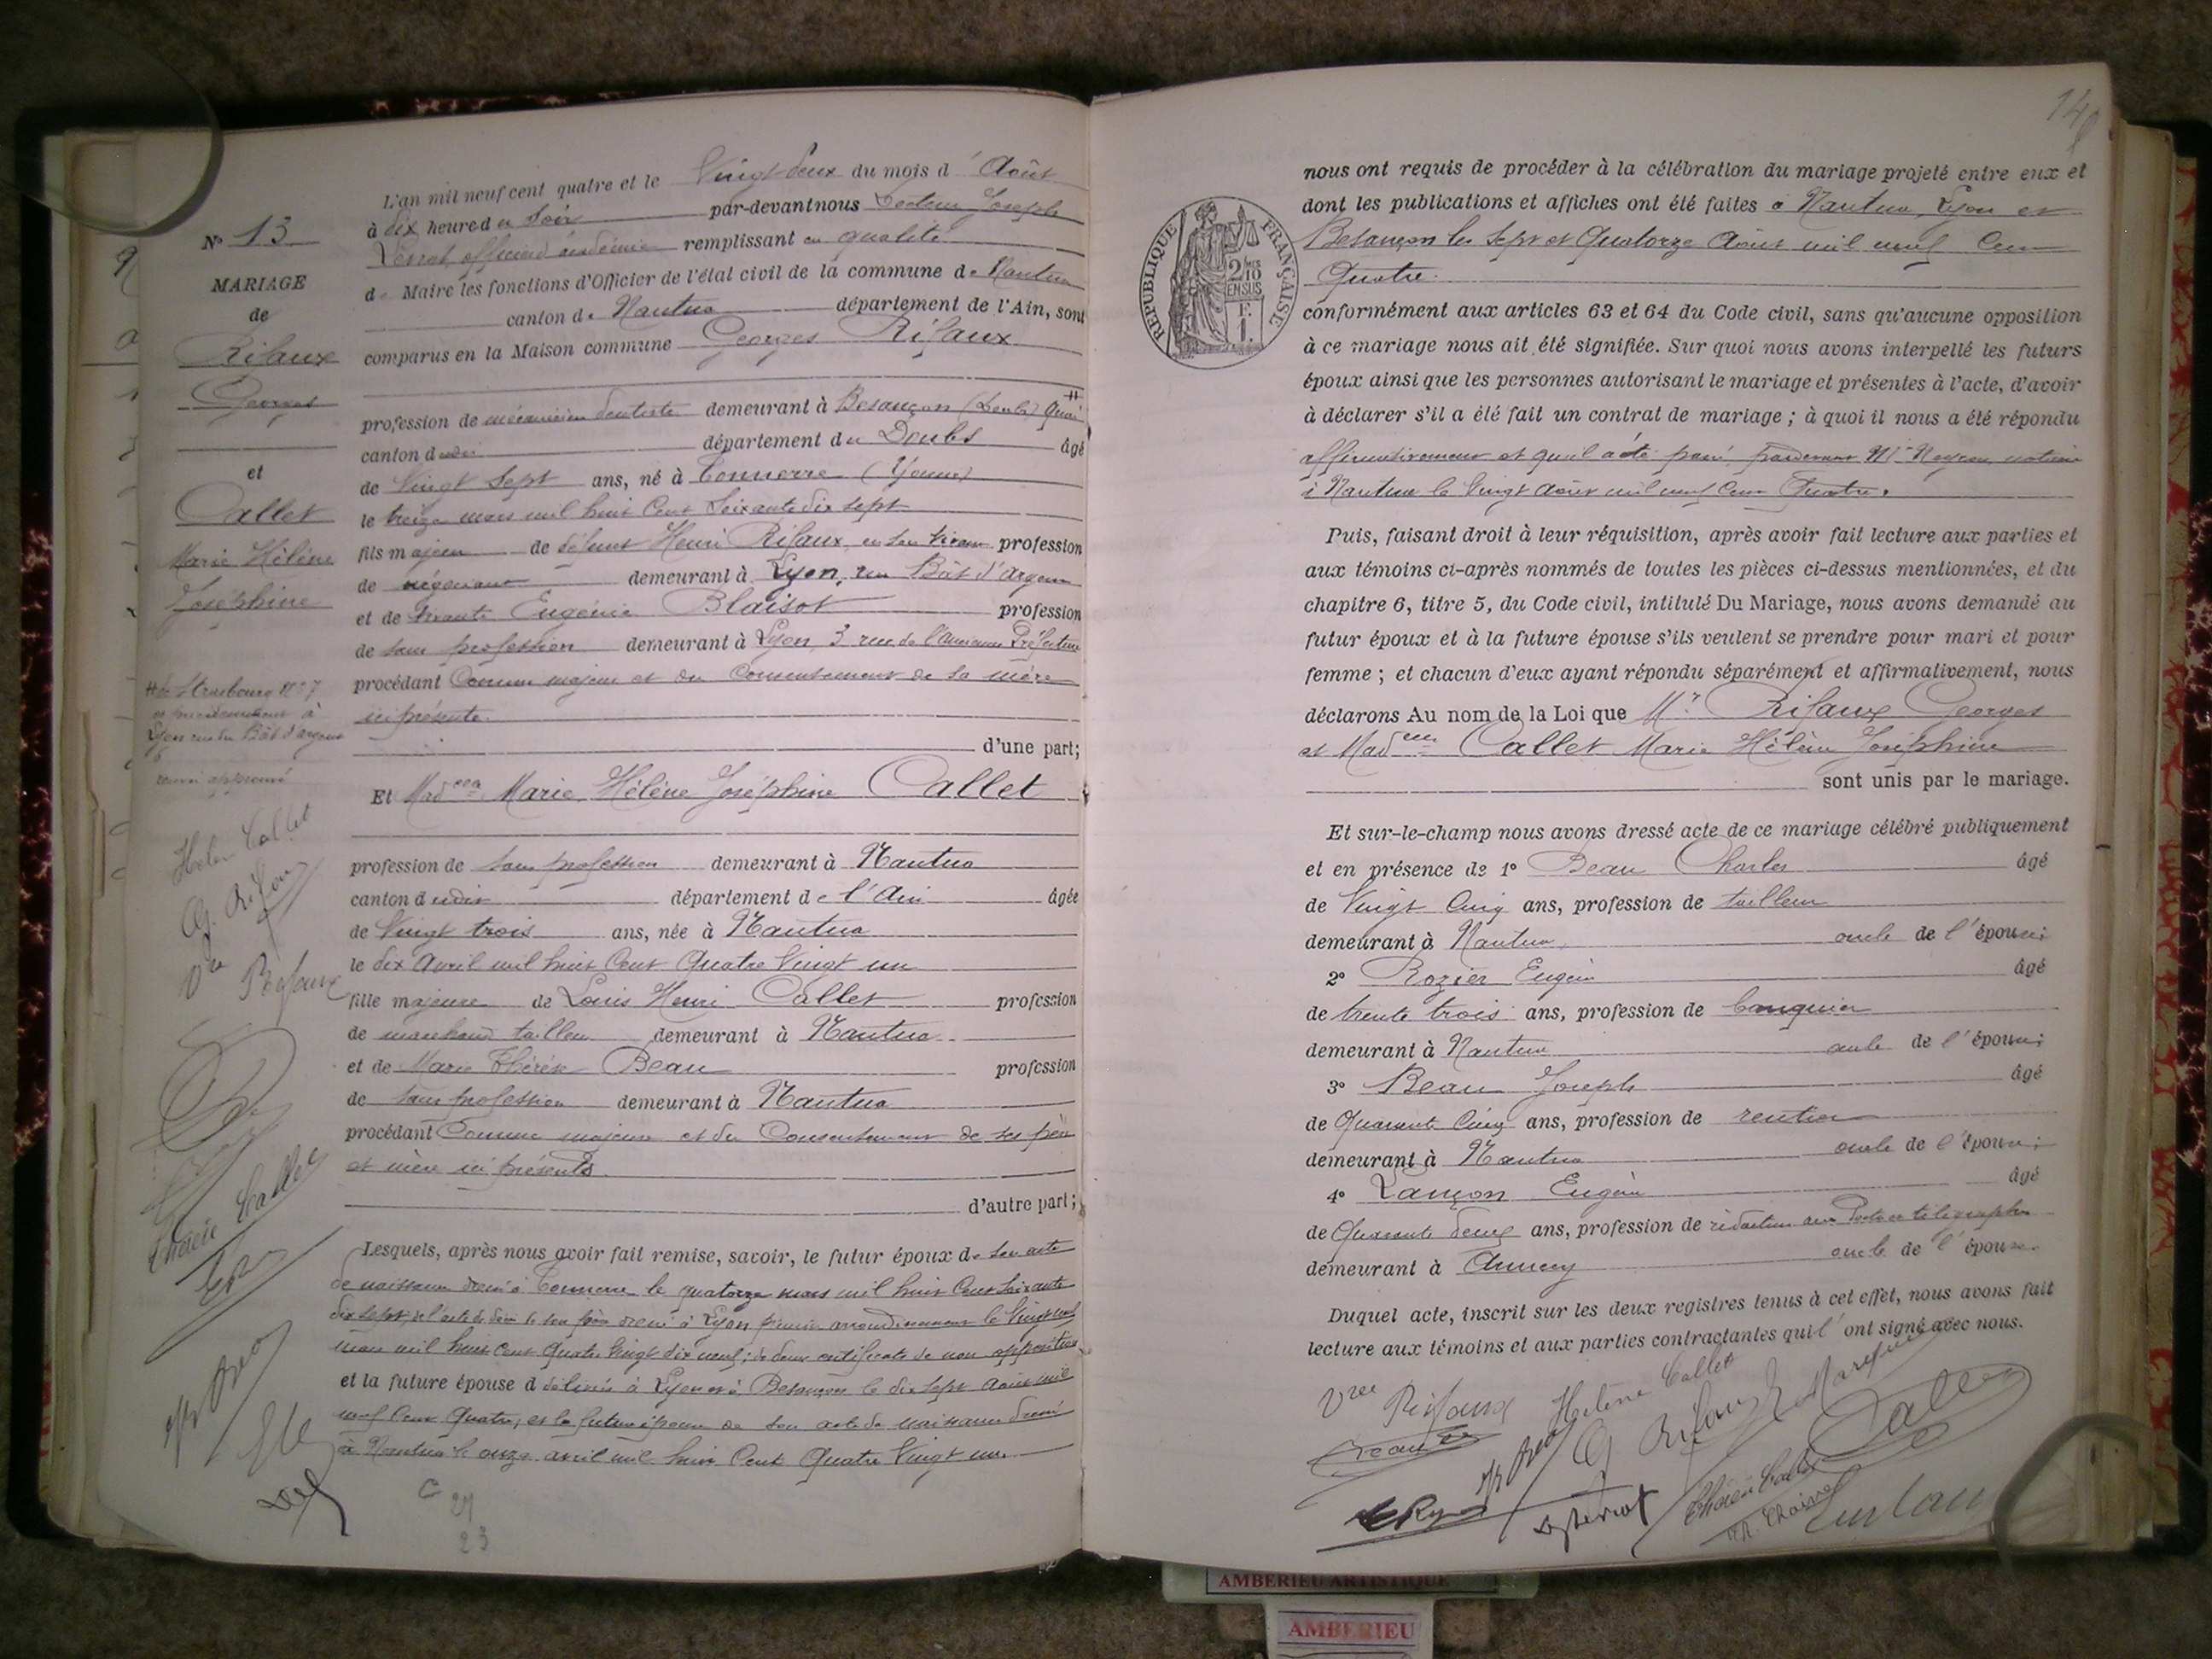 L'an mil neuf cent quatre et le Vingt deux du mois d'Août
à dix heures du Soir par-devant nous Docteur Joseph
officier d'académie remplissant en qualité
de Maire les fonctions d'Officier de l'état civil de la commune de Nantua
canton de Nantua département de l'Ain, sont
comparus en la Maison commune Georges Rifaux
N° 13
MARIAGE
de
Rifaux
Georges
et
Callet
Marie Hélène
Joséphine
profession de mécanicien dentiste demeurant à Besançon (Doubs) Quai #
canton dudit département du Doubs âgé
de Vingt Sept ans, né à Tonnerre (Yonne)
le treize mars mil huit Cent Soixante dix sept
fils majeur de défunt Henri Rifaux en son vivant profession
de négociant demeurant à Lyon, rue Bât d'argent
et de vivante Eugénie Blaisot profession
de sans profession demeurant à Lyon 3 rue de l'ancienne Préfecture
procédant Comme majeur et du Consentement de sa mère
ici présente.
d'une part;
# de Strasbourg N° 7
et précédemment à
Lyon rue du Bât d'argent
6
renvoi approuvé
Et Mad.elle Marie Hélène Joséphine Callet
profession de sans profession demeurant à Nantua
canton dudit département de l'Ain âgée
de Vingt trois ans, née à Nantua
le dix Avril mil huit Cent Quatre Vingt un
fille majeure de Louis Henri Callet profession
de marchand tailleur demeurant à Nantua
et de Marie Thérèse Beau profession
de sans profession demeurant à Nantua
procédant Comme majeure et du Consentement de ses père
et mère ici présents
d'autre part;
Lesquels, après nous avoir fait remise, savoir, le futur époux de son acte
de naissance dressé à Tonnerre le quatorze mars mil huit Cent Soixante
dix sept, de l'acte de décès de son père dressé à Lyon premier arrondissement le Vingt neuf
mars mil huit cent Quatre Vingt dix neuf; de deux certificats de non opposition
et la future épouse d délivrés à Lyon et à Besançon le dix sept Août mil
neuf Cent Quatre, et la future épouse de son acte de naissance dressé
à Nantua le onze avril mil huit Cent Quatre Vingt un.
Hélène Callet
G. Rifaux
Vve Rifaux
Thérèse Callet
C
27
23
14
RÉPUBLIQUE FRANÇAISE
2/10 EN SUS
nous ont requis de procéder à la célébration du mariage projeté entre eux et
dont les publications et affiches ont été faites à Nantua, Lyon et
Besançon les Sept et Quatorze Août mil neuf Cent
Quatre.
conformément aux articles 63 et 64 du Code civil, sans qu'aucune opposition
à ce mariage nous ait été signifiée. Sur quoi nous avons interpellé les futurs
époux ainsi que les personnes autorisant le mariage et présentes à l'acte, d'avoir
à déclarer s'il a été fait un contrat de mariage ; à quoi il nous a été répondu
affirmativement et qu'il a été passé pardevant Me notaire
à Nantua le Vingt Août mil neuf Cent Quatre.
Puis, faisant droit à leur réquisition, après avoir fait lecture aux parties et
aux témoins ci-après nommés de toutes les pièces ci-dessus mentionnées, et du
chapitre 6, titre 5, du Code civil, intitulé Du Mariage, nous avons demandé au
futur époux et à la future épouse s'ils veulent se prendre pour mari et pour
femme ; et chacun d'eux ayant répondu séparément et affirmativement, nous
déclarons Au nom de la Loi que Mr Rifaux Georges
et Mad elle Callet Marie Hélène Joséphine
sont unis par le mariage.
Et sur-le-champ nous avons dressé acte de ce mariage célébré publiquement
et en présence de 1° Beau Charles âgé
de Vingt Cinq ans, profession de tailleur
demeurant à Nantua, oncle de l'épouse;
2° Rozier Eugène âgé
de trente trois ans, profession de banquier
demeurant à Nantua oncle de l'épouse;
3° Beau Joseph âgé
de Quarante Cinq ans, profession de rentier
demeurant à Nantua oncle de l'épouse;
4° Lançon Eugène âgé
de Quarante deux ans, profession de rédacteur aux Postes et télégraphes
demeurant à Annecy oncle de l'épouse.
Duquel acte, inscrit sur les deux registres tenus à cet effet, nous avons fait
lecture aux témoins et aux parties contractantes qui l'ont signé avec nous.
Vve Rifaux Hélène Callet
G Rifaux Callet
Thérèse Callet
AMBERIEU ARTISTIQUE
AMBERIEU